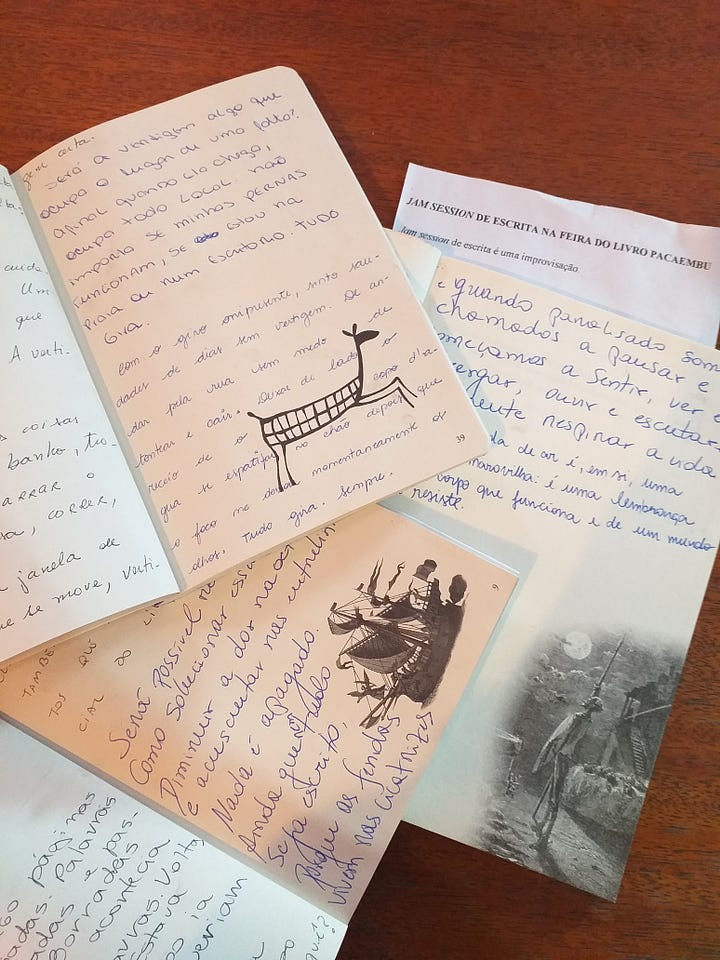 gem certa.
Será a vertigem algo que
ocupa o lugar de uma falta?
Afinal quando ela chega,
ocupa todo local. Não
importa se minhas pernas
funcionam, se estou na
praia ou num escritório. Tudo
gira.
Com o giro onipresente, sinto sau-
dades de dias sem vertigem. De an-
dar pela rua sem medo de
tontear e cair. Deixar de lado o
receio de o copo d'á-
gua se espatifar no chão depois que
o foco me deixar momentaneamente os
olhos. Tudo gira. Sempre.
39
cuida.
Um
que
A verti-
coisas
banho, tro-
arrar o
correr,
janela de
se move, verti-
JAM SESSION DE ESCRITA NA FEIRA DO LIVRO PACAEMBU
Jam session de escrita é uma improvisação
e quando paralisado som
chamados a pausar e
começamos a sentir, ver e
ergar, ouvir e escutar
mente respirar a vida
da de ar é, em si, uma
maravilha: é uma lembrança
corpo que funciona e de um mundo
resiste.
6
TAMBÉ
TOS QUE
CIAL DO
Será possível
Como solucionar
Diminuir a dor na
e acrescentar nas entrelin
Nada é apagado
Ainda que tudo
seja escrito,
Porque as fendas
vivem nas cicatrizes
páginas
adas. Palavras
adas e pas-
Borradas
acontecia
avras. Volta
Estava
ia
veriam
quê?